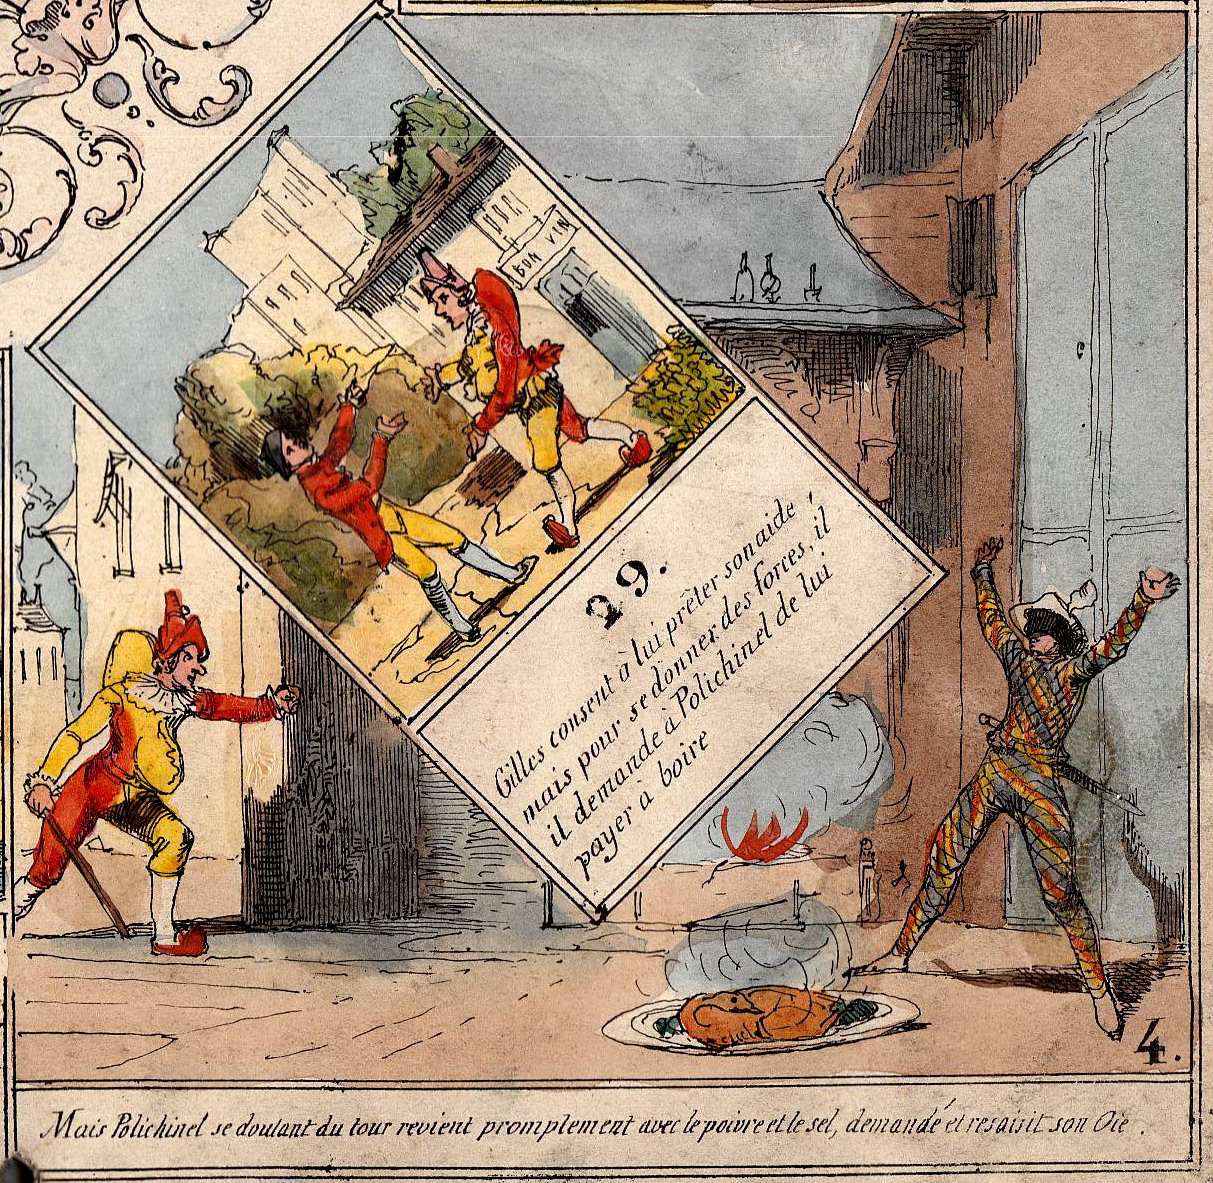 BON VIN
29.
Gilles consent à lui prêter son aide,
mais pour se donner des forces, il
il demande à Polichinel de lui
payer à boire
4.
Mais Polichinel se doutant du tour revient promplement avec le poivre et le sel, demandé et resaisit son Oie.